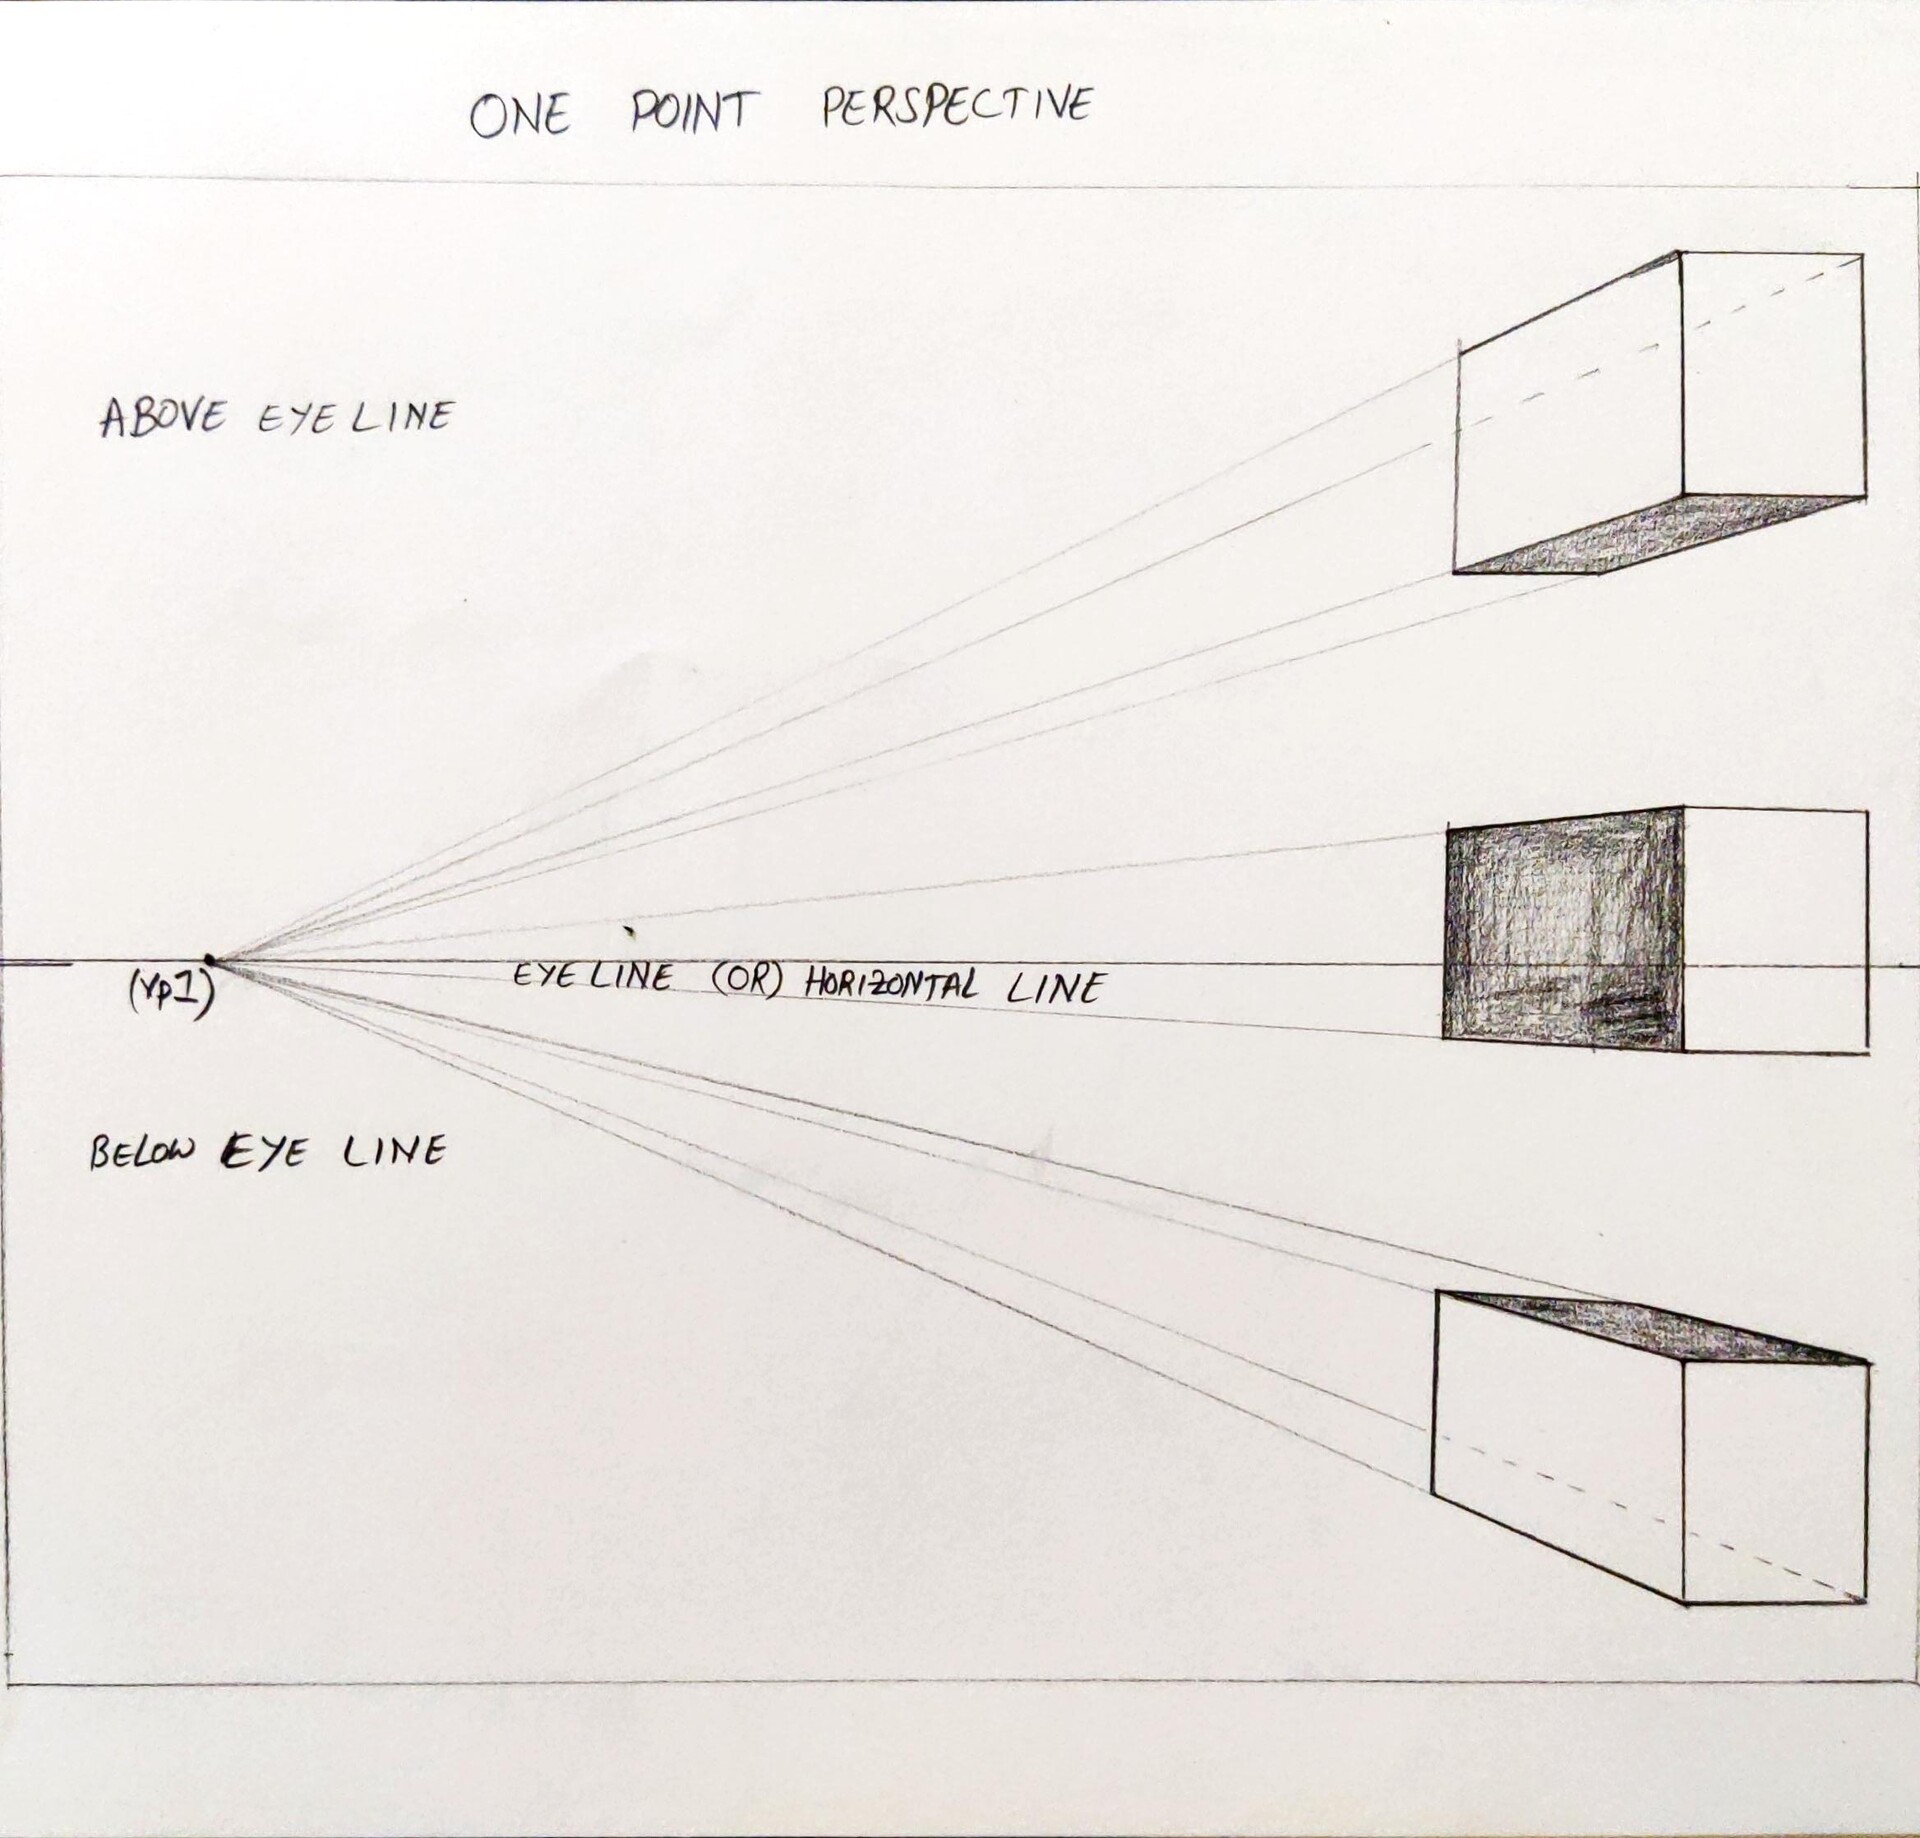 ONE POINT PERSPECTIVE
ABOVE EYE LINE
(VP1)
EYE LINE (OR) HORIZONTAL LINE
BELOW EYE LINE